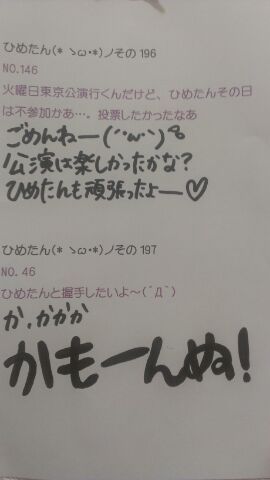 ひめたん(* ゝω・*)ノその196
NO.146
火曜日東京公演行くんだけど、ひめたんその日
は不参加かあ…。投票したかったなあ
ごめんねー(´･ω･`)
公演は楽しかったかな?
ひめたんも頑張ったよー♡
ひめたん(* ゝω・*)ノその197
NO.46
ひめたんと握手したいよ〜(´Д`)
か、かがが
かもーんぬ!